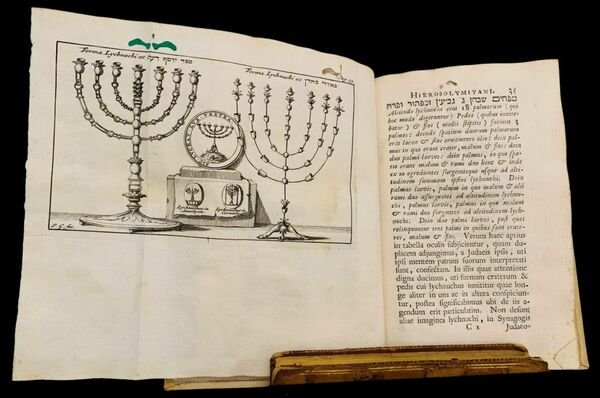 Forma Lychnuchi ex ספר יוסף דעת
Forma Lychnuchi ex
J. G. fec.
HIEROSOLYMITANI. 35
טפחים שבהן ג גביעין וכפתור ופרח
Altitudo lychnuchi erat 18 palmorum (qui
hoc modo digeruntur) Pedes (quibus innite-
batur) & flos (medii stipitis) faciunt 3
palmos: deinde spatium duorum palmorum
erit laeve & sine ornamento alio: dein pal-
mus in quo erant crater, malum & flos: dein
duo palmi laeves: dein palmus, in quo spa-
tio erant malum & rami duo hinc & inde
ex eo egredientes surgentesque usque ad alti-
tudinem summam ipsius lychnuchi. Dein
palmus laevis, palmus in quo malum & alii
rami duo assurgentes ad altitudinem lychnu-
chi, palmus laevis, palmus in quo malum
& rami duo surgentes ad altitudinem lych-
nuchi. Dein duo palmi laeves, post quos
relinquuntur tres palmi in quibus sunt crate-
res, malum & flos. Verum haec aptius
in tabella oculis subjicientur, quam du-
plicem adjungimus, a Judaeis ipsis, uti
ipsi mentem patrum suorum interpretati
sunt, confectam. In illis quae attentione
digna ducimus, uti formam craterum &
pedis cui lychnuchus innititur quae lon-
ge aliter in una ac in altera conspiciun-
tur, postea significabimus ubi de iis a-
gendum erit particulatim. Non desunt
aliae imagines lychnuchi, in Synagogis
C 2 Judaeo-